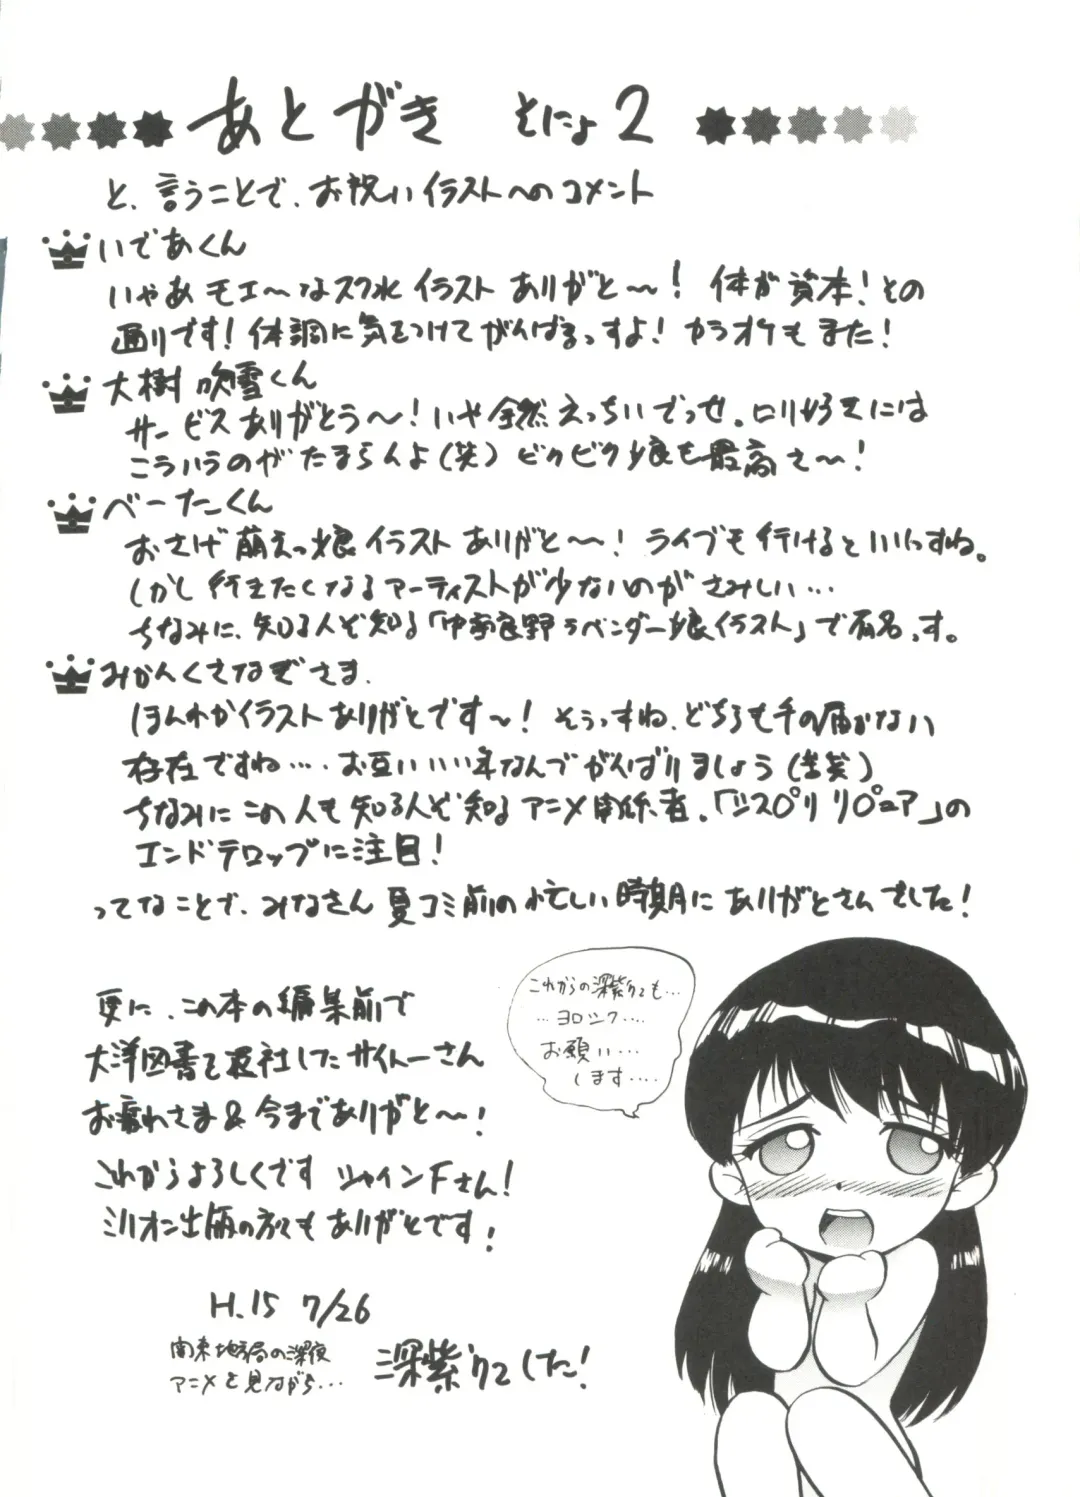 あとがき そにょ2
と、言うことで、お祝いイラストへのコメント
いであくん
いやあモエ〜なスク水イラストありがと〜!体が資本!との
通りです!体調に気をつけてがんばまっすよ!カラオケもまた!
大樹吹雪くん
サービスありがとう〜!いや全然えっちいでっせ。ロリ好きには
こういうのがたまらんよ(笑)ビクビク娘も最高さ〜!
べーたくん
おさげ萌えっ娘イラストありがと〜〜!ライブも行けるといいっすね。
しかし行きたくなるアーティストが少ないのがさみしい…
ちなみに、知る人ぞ知る「中富良野ラベンダー娘イラスト」で有名っす。
みかんくさなぎさま、
ほんわかイラストありがとです〜!そうっすね、どちらも手の届かない
存在ですね…、お互いいい年なんでがんばりましょう(苦笑)
ちなみにこの人も知る人ぞ知るアニメ関係者。「シスプリ リピュア」の
エンドテロップに注目!
ってなことで、みなさん夏コミ前の忙しい時期にありがとさんでした!
更に、この本の編集前で
大洋図書を退社したサイトーさん
お疲れさま&今までありがと〜!
これからよろしくです シャインFさん!
ミリオン出版の方々もありがとです!
これからの深紫りこも…
…ヨロシク…
お願い…
します…
H.15 7/26
関東地方局の深夜
アニメを見ながら…
深紫りこでした!